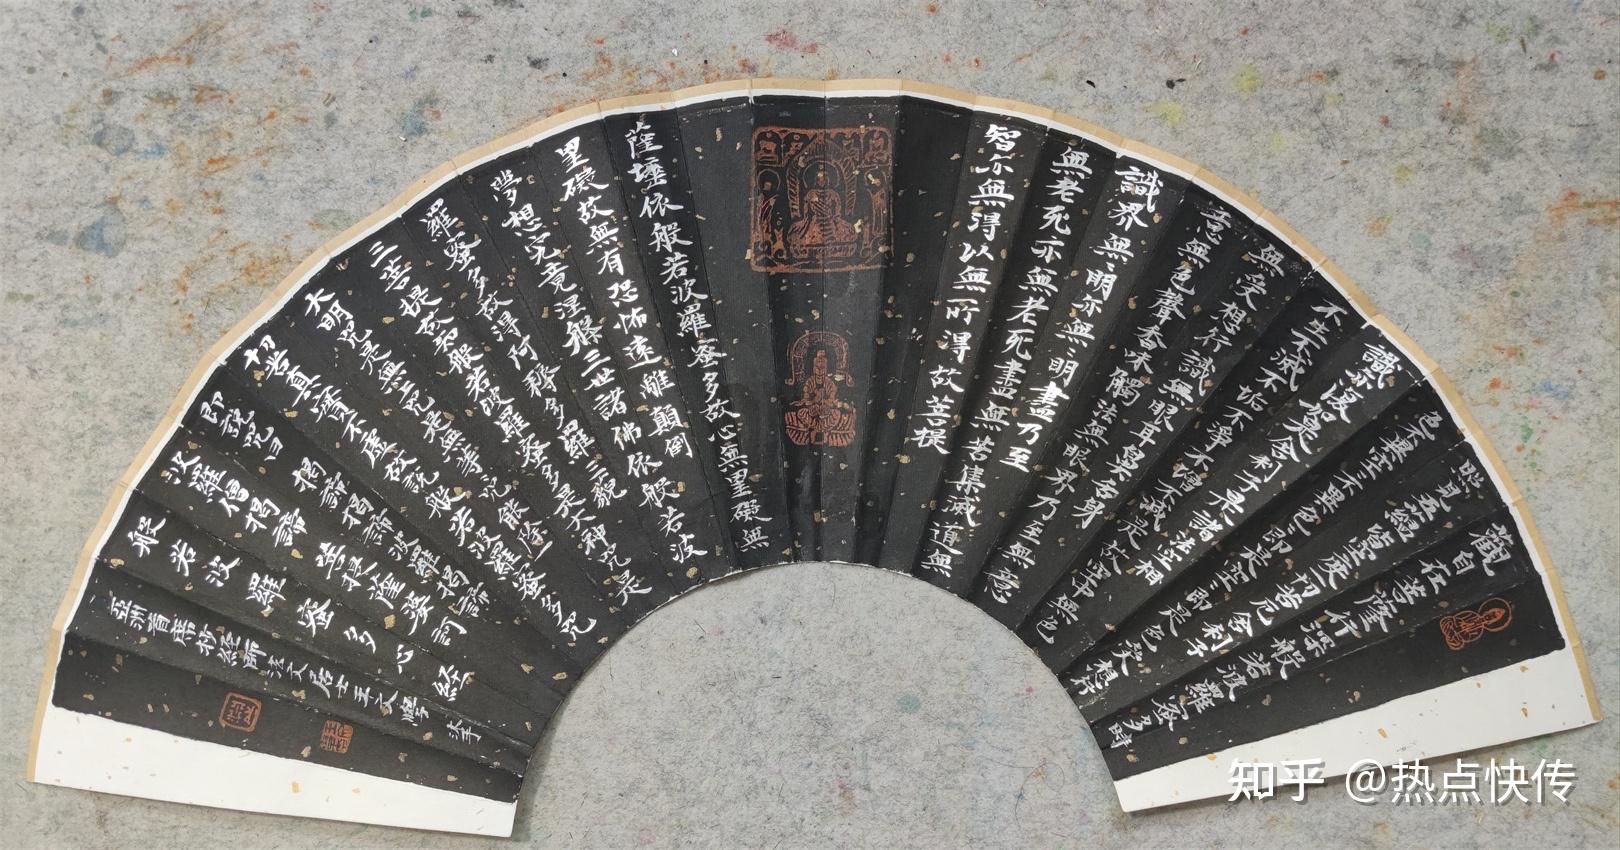 觀自在菩薩行深般若波羅蜜多時
照見五蘊皆空度一切苦厄舍利子
色不異空空不異色色即是空空即是色受想行
識亦復如是舍利子是諸法空相
不生不滅不垢不淨不增不減是故空中無色
無受想行識無眼耳鼻舌身
意無色聲香味觸法無眼界乃至無意
識界無無明亦無無明盡乃至
無老死亦無老死盡無苦集滅道無
智亦無得以無所得故菩提
薩埵依般若波羅蜜多故心無罣礙無
罣礙故無有恐怖遠離顛倒
夢想究竟涅槃三世諸佛依般若波
羅蜜多故得阿耨多羅三藐
三菩提故知般若波羅蜜多是大神咒是
大明咒是無上咒是無等咒能除
一切苦真實不虛故說般若波羅蜜多咒
即說咒曰
揭諦揭諦波羅揭諦
波羅僧揭諦菩提薩婆訶
般若波羅密多心經
亞洲首席抄經師法文居士王文學沐手
知乎 @热点快传